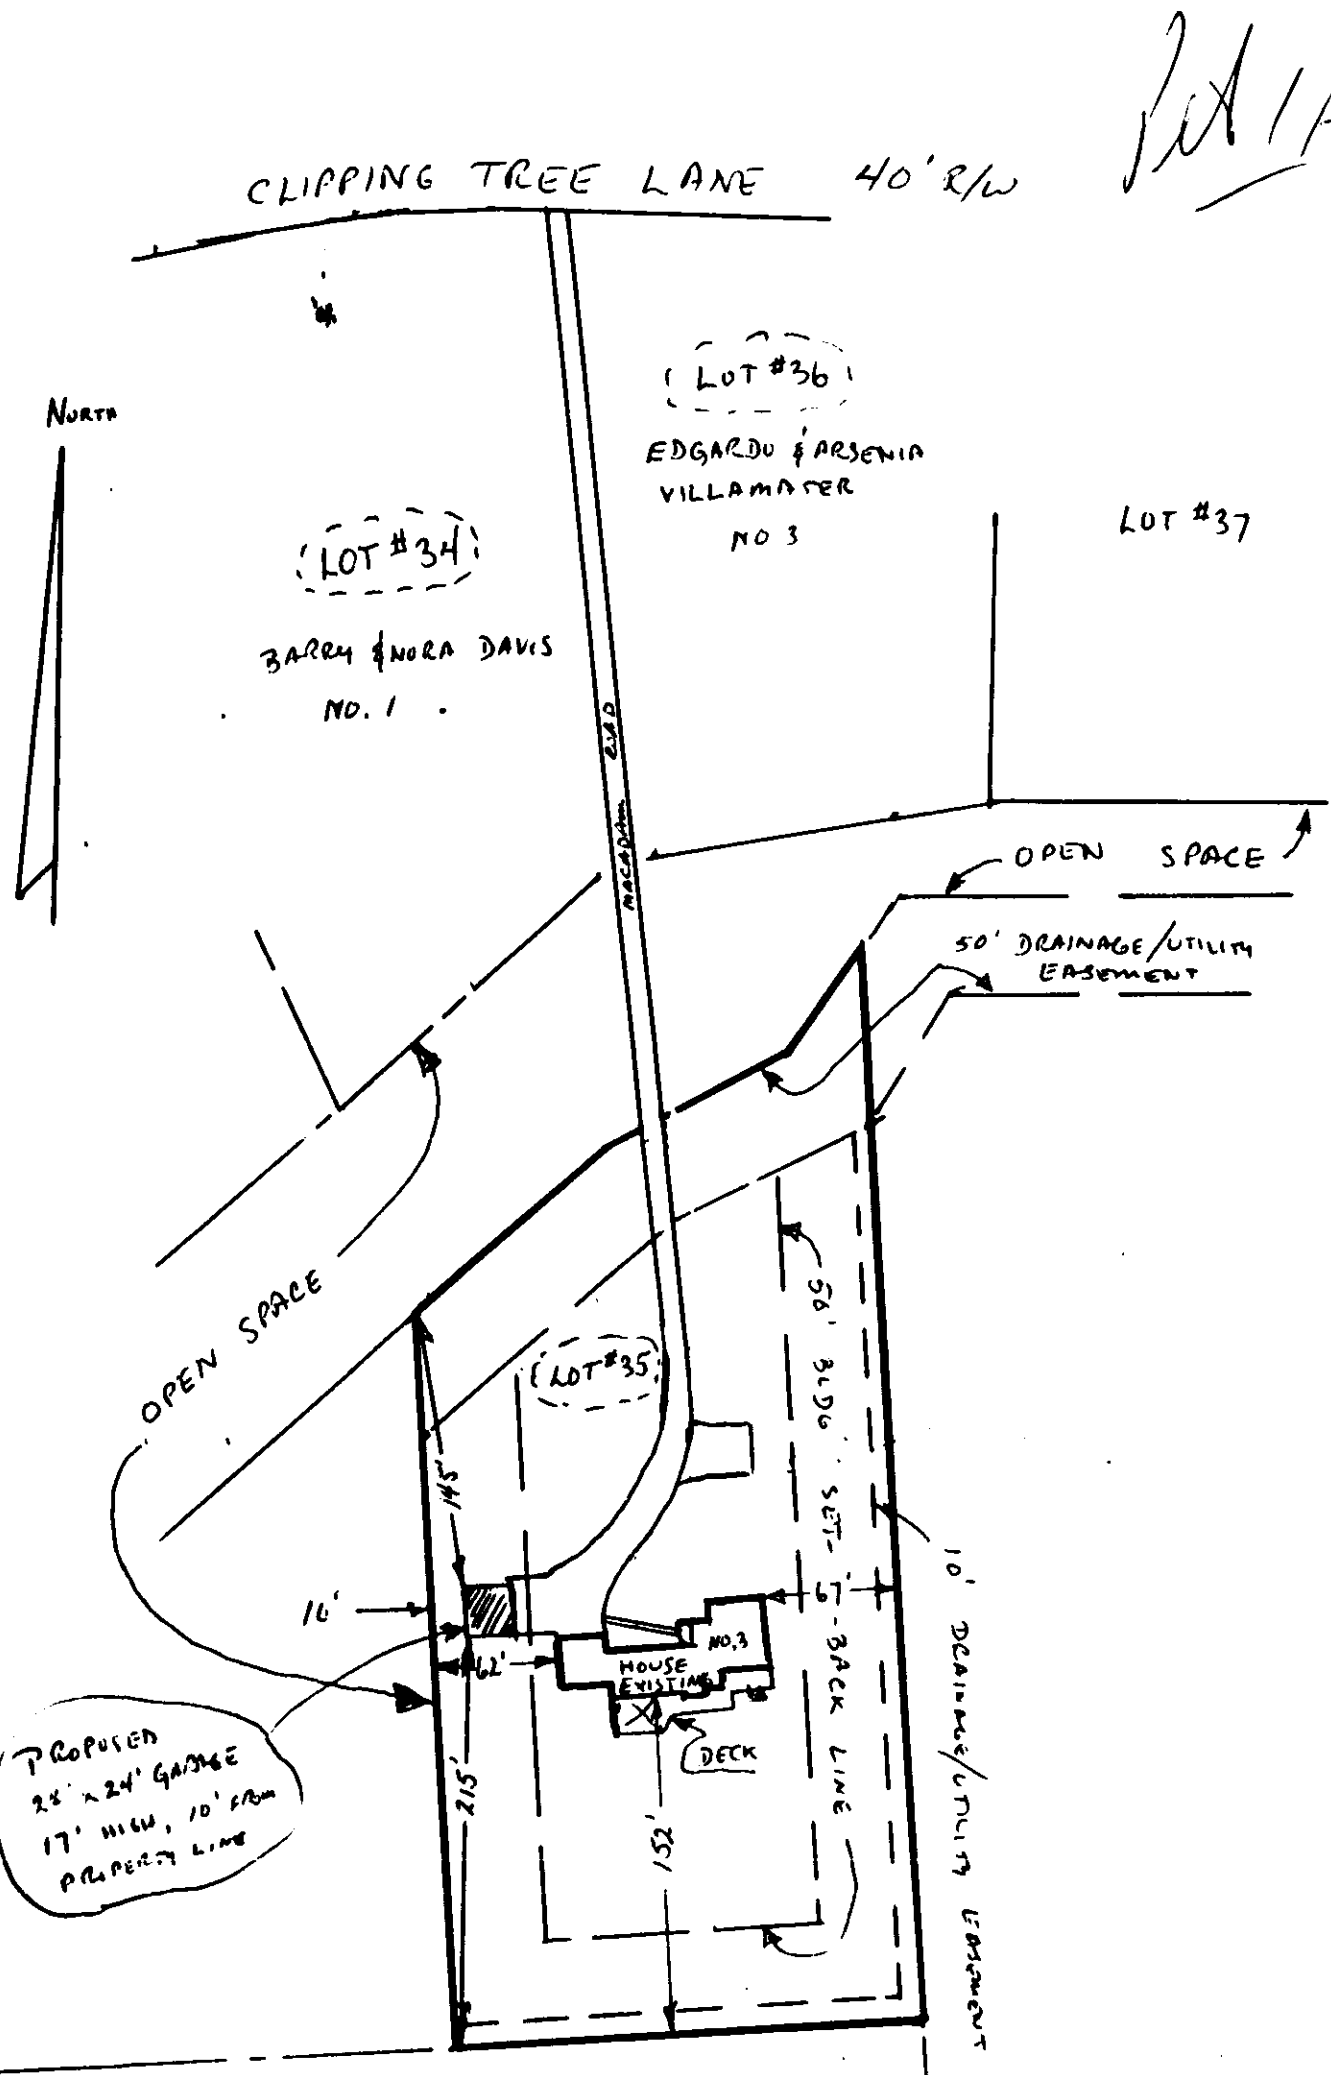 Pet 1A
CLIPPING TREE LANE 40' R/W
LOT #36
EDGARDO & ARSENIA
VILLAMATER
NO 3
NORTH
LOT #37
LOT #34
BARRY & NORA DAVIS
NO. 1
MACADAM ROAD
OPEN SPACE
50' DRAINAGE/UTILITY
EASEMENT
OPEN SPACE
50' BLDG. SET-BACK LINE
LOT #35
145'
10' DRAINAGE/UTILITY EASEMENT
16'
67'
NO.3
62'
HOUSE
EXISTING
DECK
PROPOSED
28' x 24' GARAGE
17' HIGH, 10' FROM
PROPERTY LINE
215'
152'